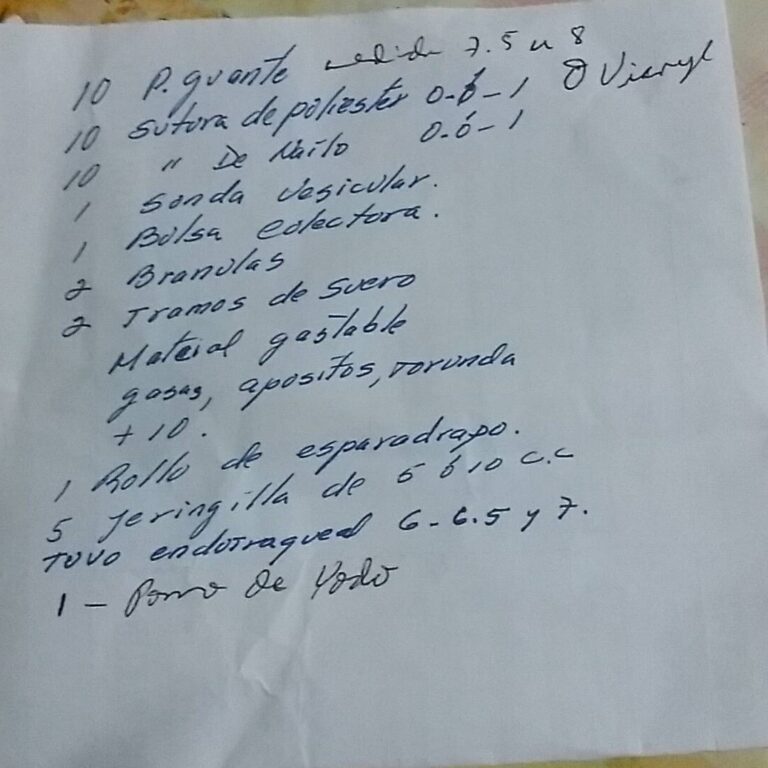 10 P. guante medida 7.5 u 8
10 Sutura de poliester 0-ó-1 O Vicryl
10 " De Nailo 0.ó-1
1 Sonda Vesicular.
1 Bolsa colectora.
2 Branulas
2 Tramos de Suero
Mateial gastable
gasas, apositos, torunda
+ 10.
1 Rollo de esparadrapo.
5 Jeringilla de 5 ó 10 c.c
TUVO endotraqueal 6-6.5 y 7.
1 - Pomo de Yodo